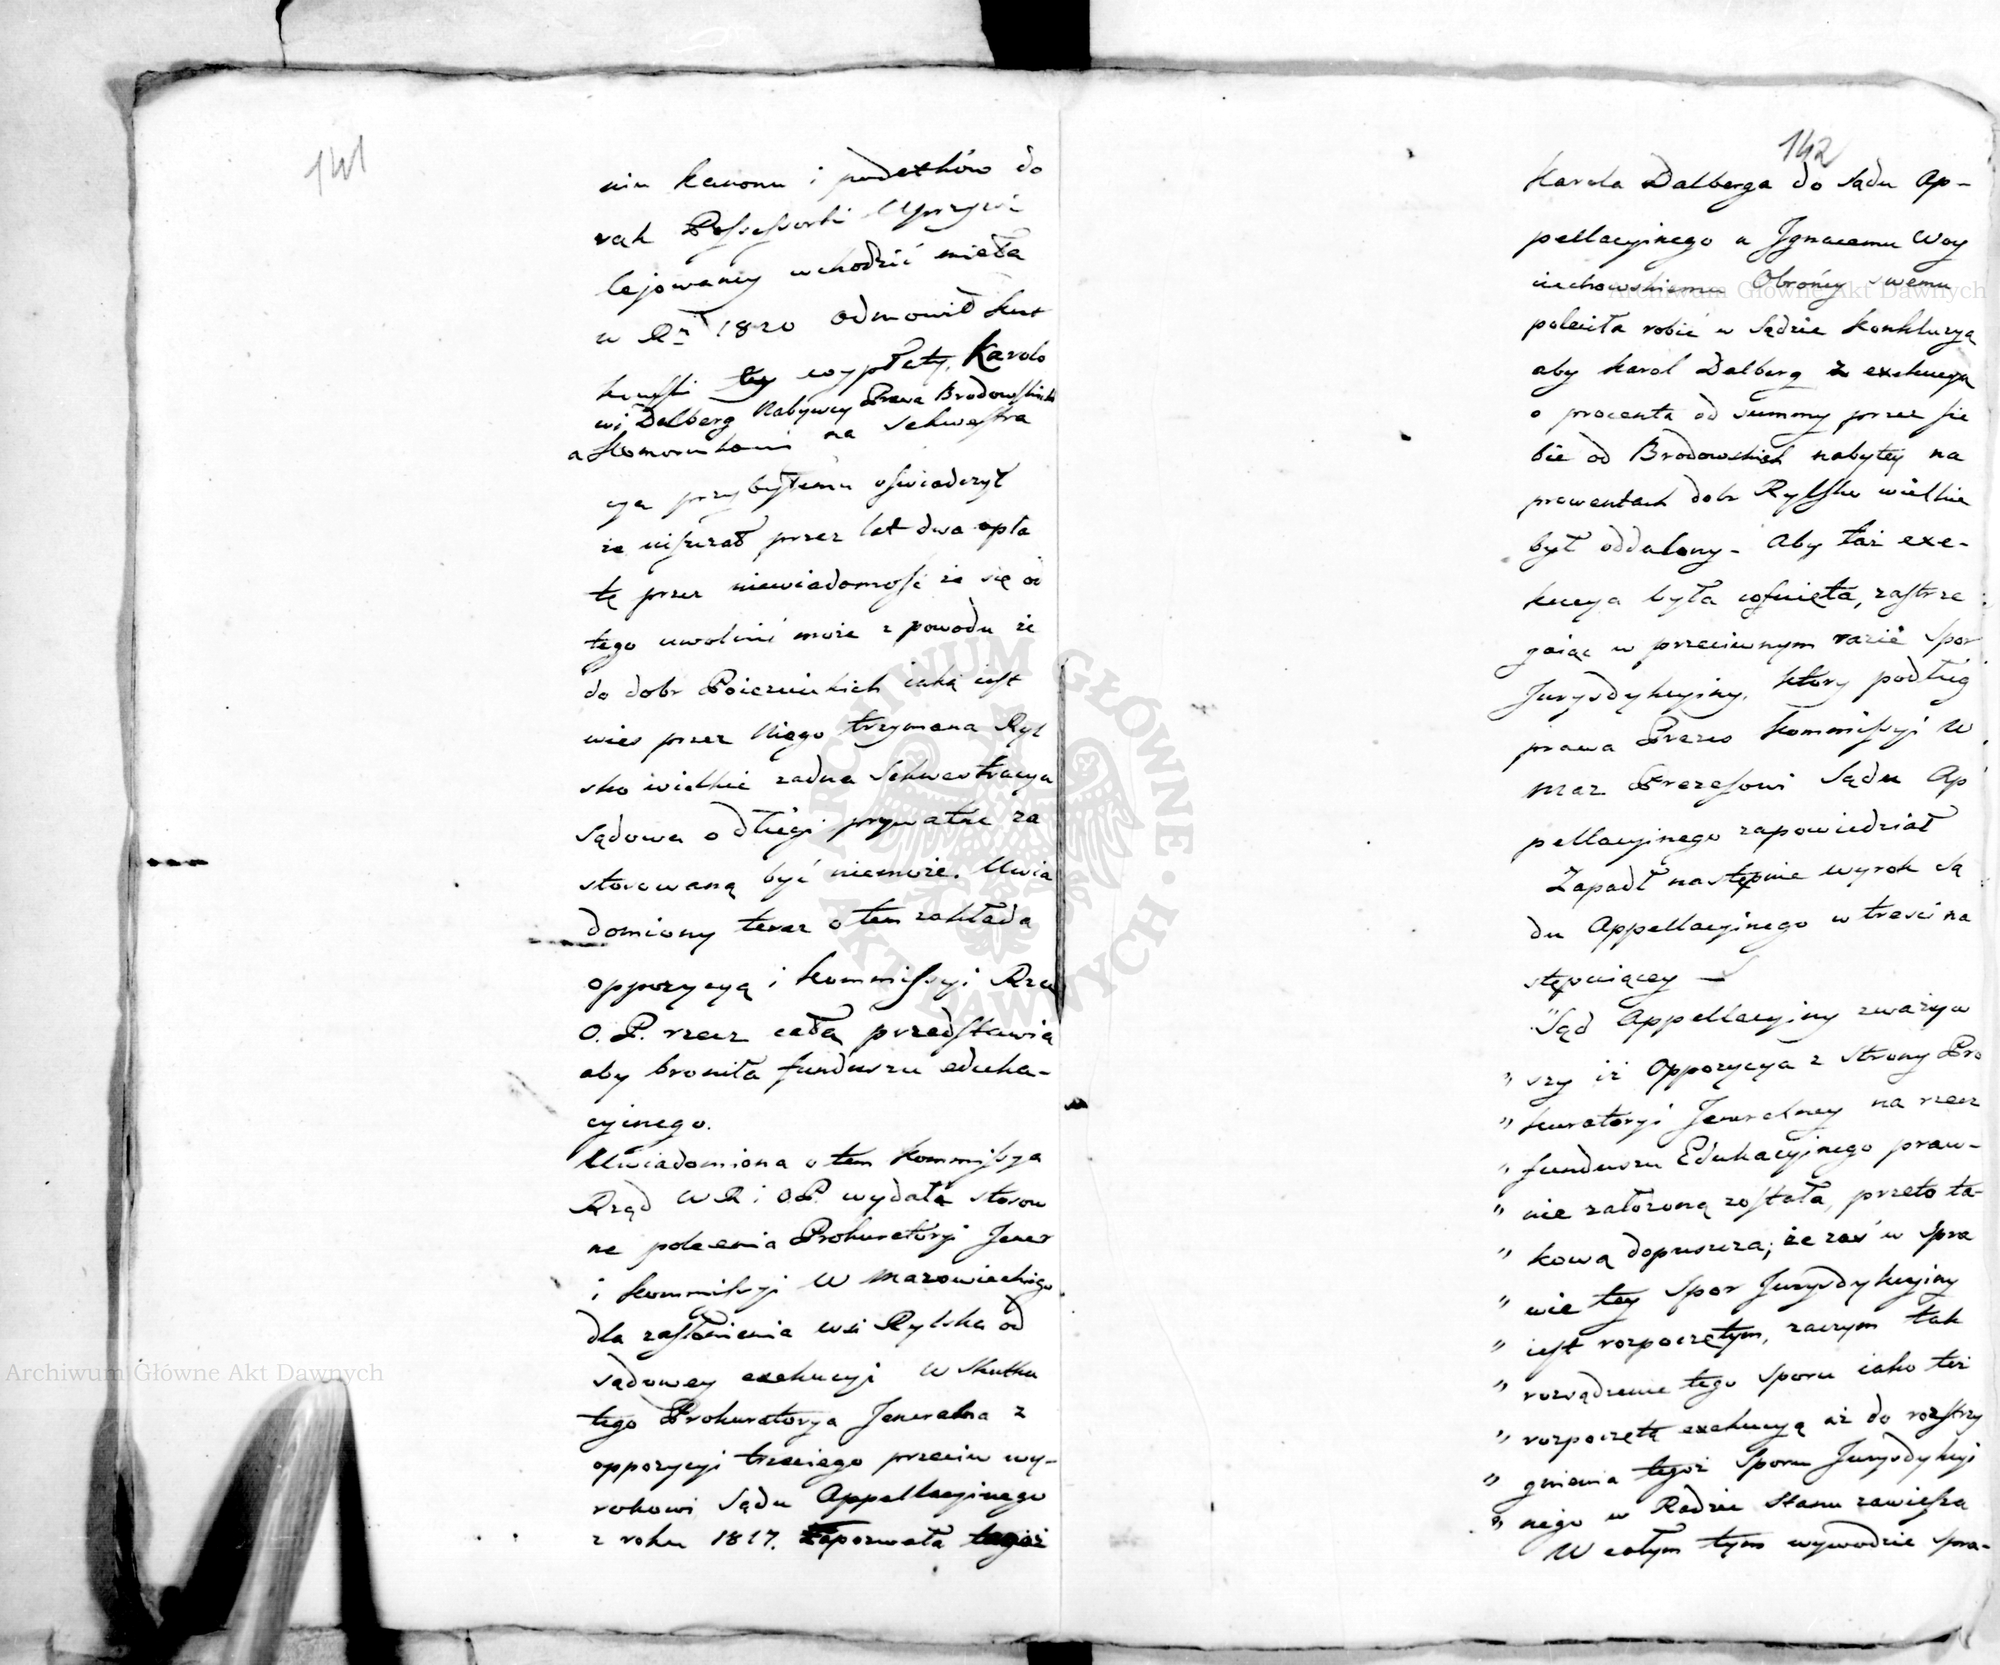 141
niu kanonu i podatków do
rąk Possessorki Uprzywi
lejowaney wchodzić miała
w R. 1820 odmowił Kar
tey wypłaty, Karolo
wi Dalberg Nabywcy Prawa Brodowskich
a Komornikowi na Sekwestra
cyą przybyłemu oświadczył
że uiszczał przez lat dwa opła
tę przez niewiadomość że się od
tego uwolnić może z powodu że
do dobr Pojezuickich iaką iest
wieś przez Niego trzymana Ryl
sko wielkie żadna Sekwestracya
sądowa o długi prywatne za
stosowaną być niemoże. Uwia
domiony teraz o tem zakłada
oppozycyą i Kommissyi Rzą
O. P. rzecz całą przedstawia
aby broniła funduszu eduka-
cyinego.
Uwiadomiona o tem Kommissya
Rząd W R i OP. wydała stosow
ne polecenia Prokuratoryi Jener
i Kommissyi W Mazowieckiego
dla zasłonienia wsi Rylska od
sądowey exekucyi W skutku
tego Prokuratorya Jeneralna z
oppozycyi trzeciego przeciw wy-
rokowi Sądu Appellacyinego
z roku 1817. Zapozwała tegoż
142
Karola Dalberga do Sądu Ap-
pellacyinego a Jgnacemu Woy
ciechowskiemu Obrońcy swemu
poleciła robić w Sądzie Konkluzyą
aby Karol Dalberg z exekucyą
o procenta od summy przez sie
bie od Brodowskich nabytey na
prowentach dobr Rylsko wielkie
był oddalony - Aby taż exe-
kucya była cofnięta, zastrze
gaiąc w przeciwnym razie Spor
Jurysdykcyiny, ktory podług
prawa Prezes Kommissyi W
Maz Prezesowi Sądu Ap
pellacyinego zapowiedział
Zapadł następnie wyrok Są
du Appellacyinego w treści na
stępuiącey
"Sąd Appellacyiny zważyw
" szy iż Oppozycya z strony Pro
" kuratoryi Jeneralney na rzecz
" funduszu Edukacyinego praw-
" nie założoną została, przeto ta-
" kową dopuszcza; że zaś w Spra
" wie tey Spor Jurysdykcyiny
" iest rozpoczętym, zaczym tak
" rozsądzenie tego Sporu iako też
" rozpoczętą exekucyą aż do rozstrzy
" gnienia tegoż Sporu Jurysdykcyi
" nego w Radzie Stanu zawiesza
W całym tym wywodzie spra-
Archiwum Główne Akt Dawnych
Archiwum Główne Akt Dawnych
ARCHIWUM GŁÓWNE AKT DAWNYCH